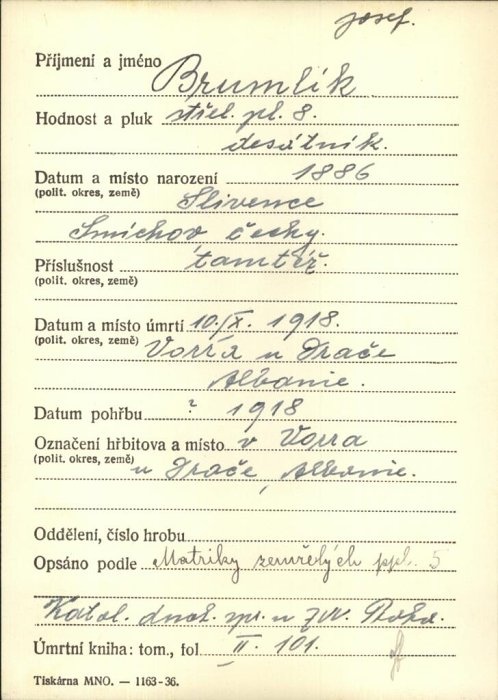 Josef.
Příjmení a jméno Brumlík
Hodnost a pluk střel. pl. 8.
desátník.
Datum a místo narození 1886
(polit. okres, země) Slivence
Smíchov Čechy.
Příslušnost tamtéž.
(polit. okres, země)
Datum a místo úmrtí 10./X. 1918.
(polit. okres, země) Vorra u Drače
Albanie.
Datum pohřbu ? 1918
Označení hřbitova a místo v Vorra
(polit. okres, země) u Drače, Albanie.
Oddělení, číslo hrobu
Opsáno podle Matriky zemřelých ppl. 5
Katol. duch. spr. u
Úmrtní kniha: tom., fol II. 101.
Tiskárna MNO. — 1163-36.